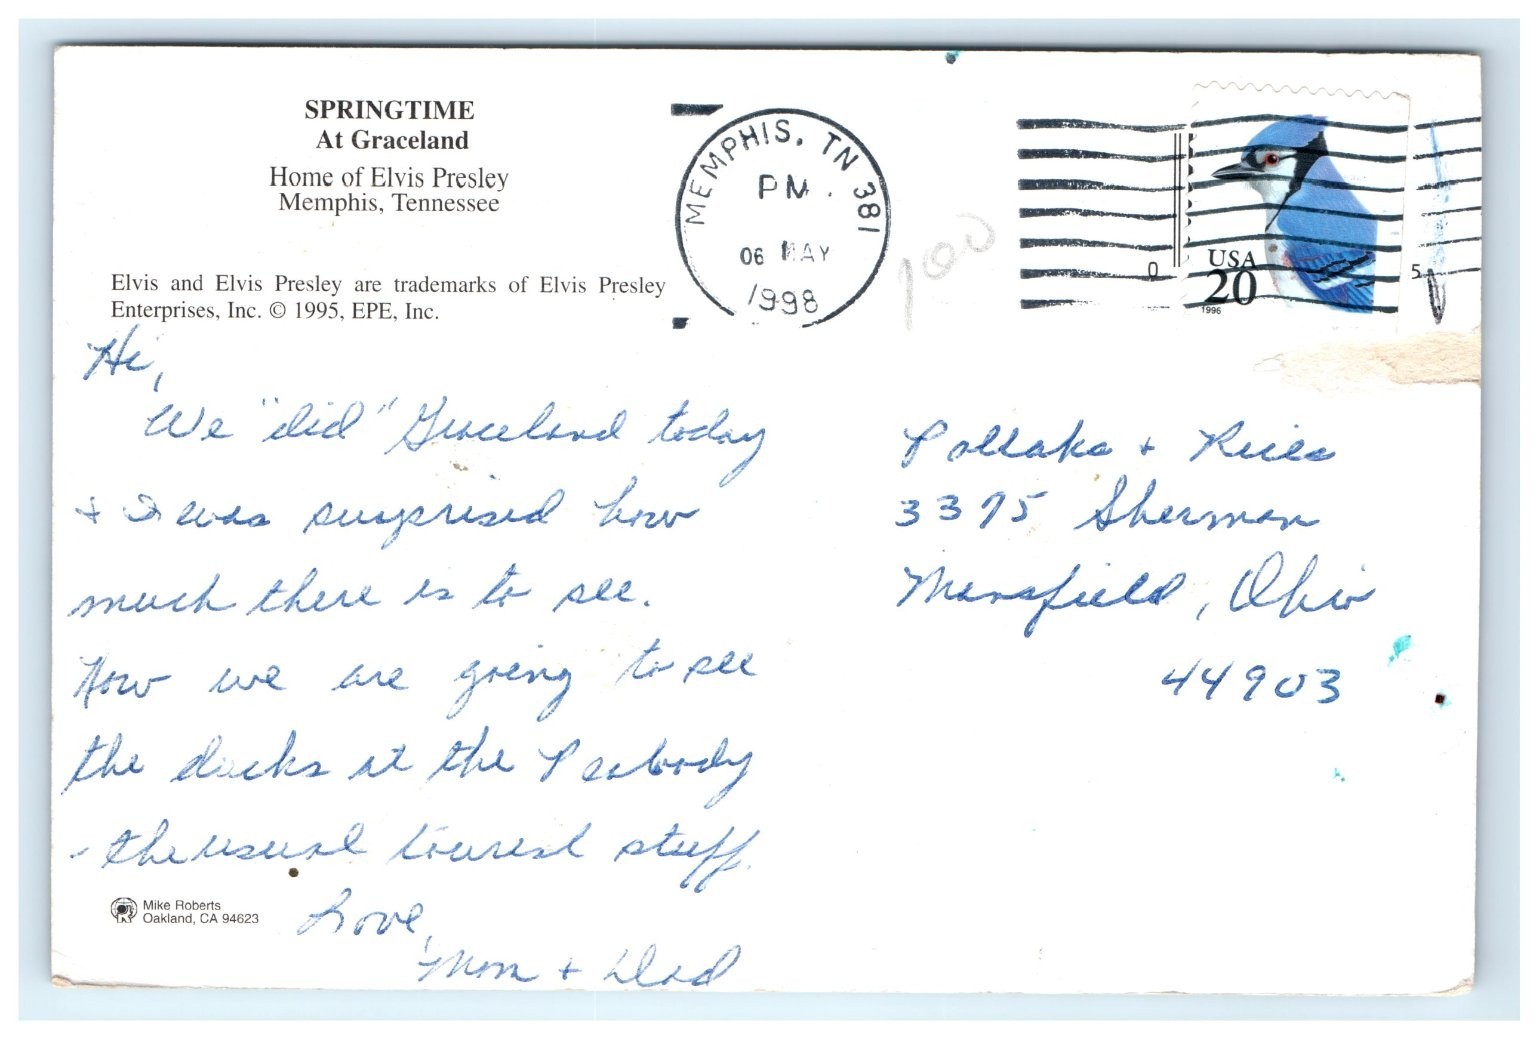 SPRINGTIME
At Graceland
Home of Elvis Presley
Memphis, Tennessee
Elvis and Elvis Presley are trademarks of Elvis Presley
Enterprises, Inc. © 1995, EPE, Inc.
MEMPHIS, TN 381
PM
06 MAY
1998
100
0
USA
20
1996
5
Hi,
We "did" Graceland today
+ I was surprised how
much there is to see.
Now we are going to see
the ducks at the Peabody
- the usual tourist stuff.
Love,
Mom + Dad
Pollaks +
3375 Sherman
Mansfield, Ohio
44903
Mike Roberts
Oakland, CA 94623